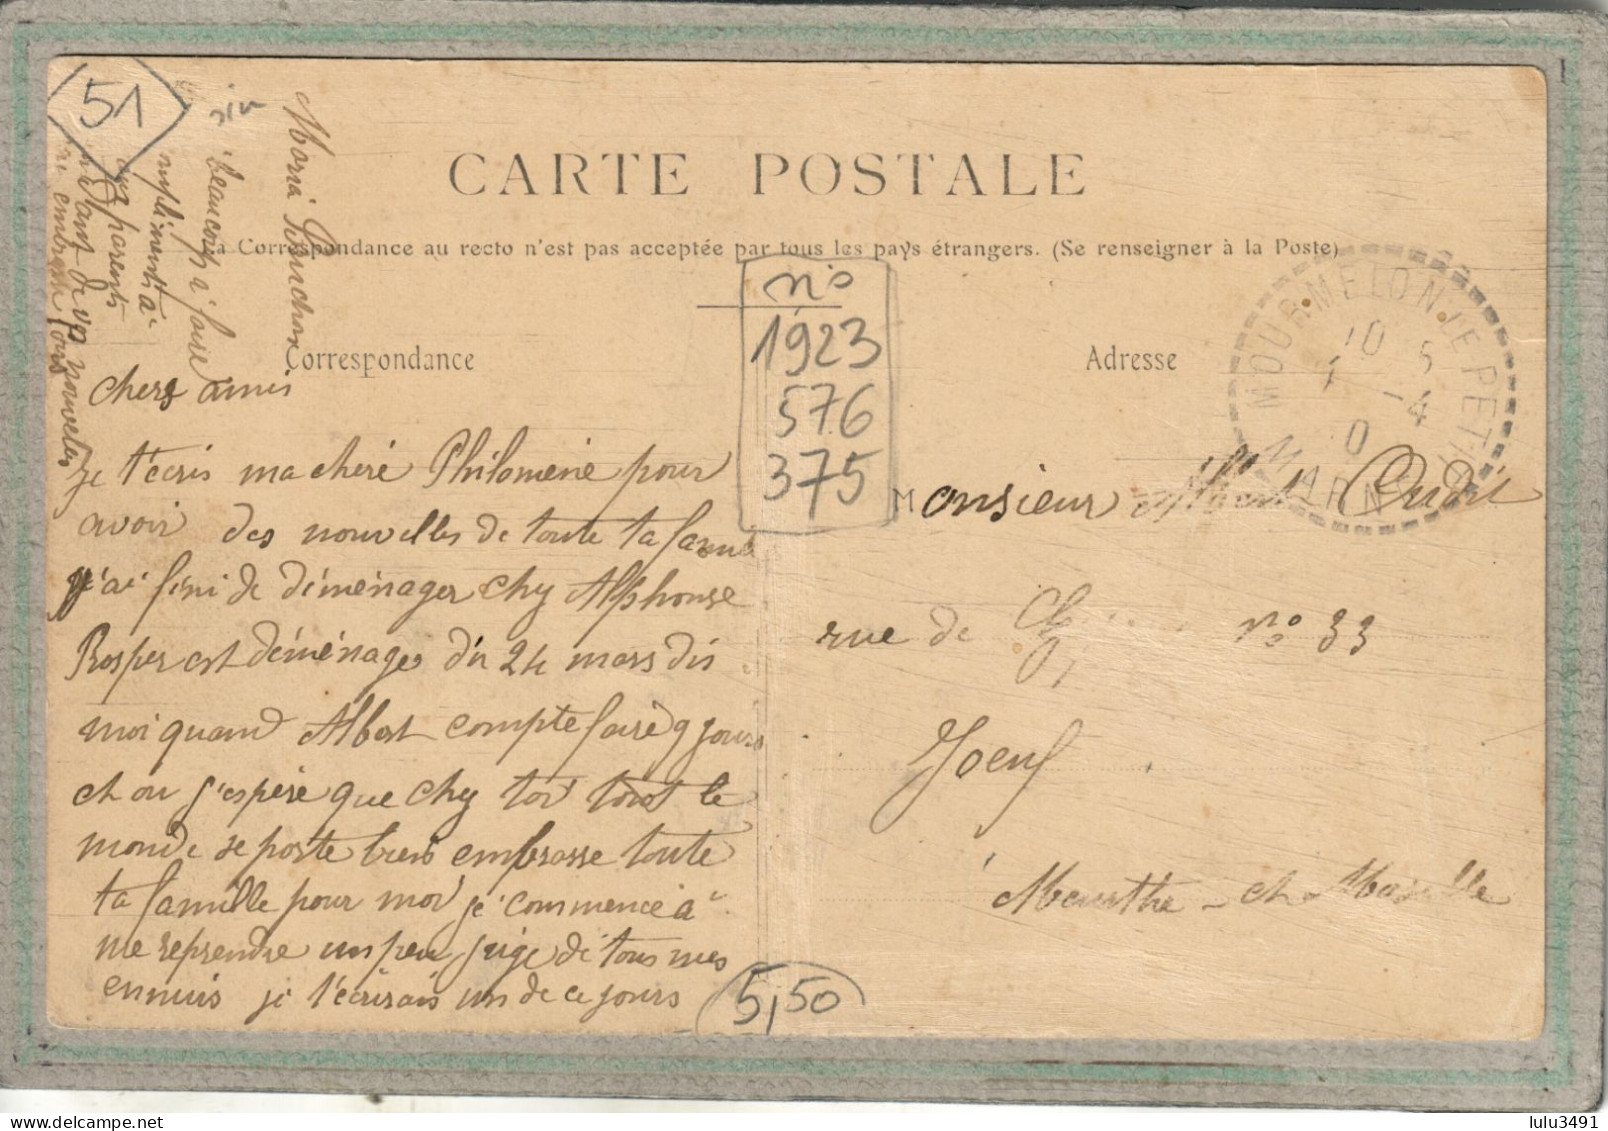 51
CARTE POSTALE
La Correspondance au recto n'est pas acceptée par tous les pays étrangers. (Se renseigner à la Poste)
Correspondance
Adresse
no
1923
576
375
MOURMELON-LE PETIT
MARNE
10
5
-4
chers amis
je t'écris ma cheré Philomene pour
avoir des nouvelles de toute ta fami
j'ai fini de déménager chy Alphonse
Prosper est déménager du 24 mars dis
moi quand Albert compte faire 9 jours
et ou j'espère que chy toi tout le
monde se porte bien embrasse toute
ta famille pour moi je commence à
me reprendre un peu juge de tous mes
ennuis je t'écrirais un de ce jours
5,50
rien
beaucoup a faire
compliments a
tes parents
attendant de vos nouvelles
embrasse tous
Maria
Monsieur Albert Oudit
rue de n° 33
Joeuf
Meurthe - et - Moselle
lulu3491